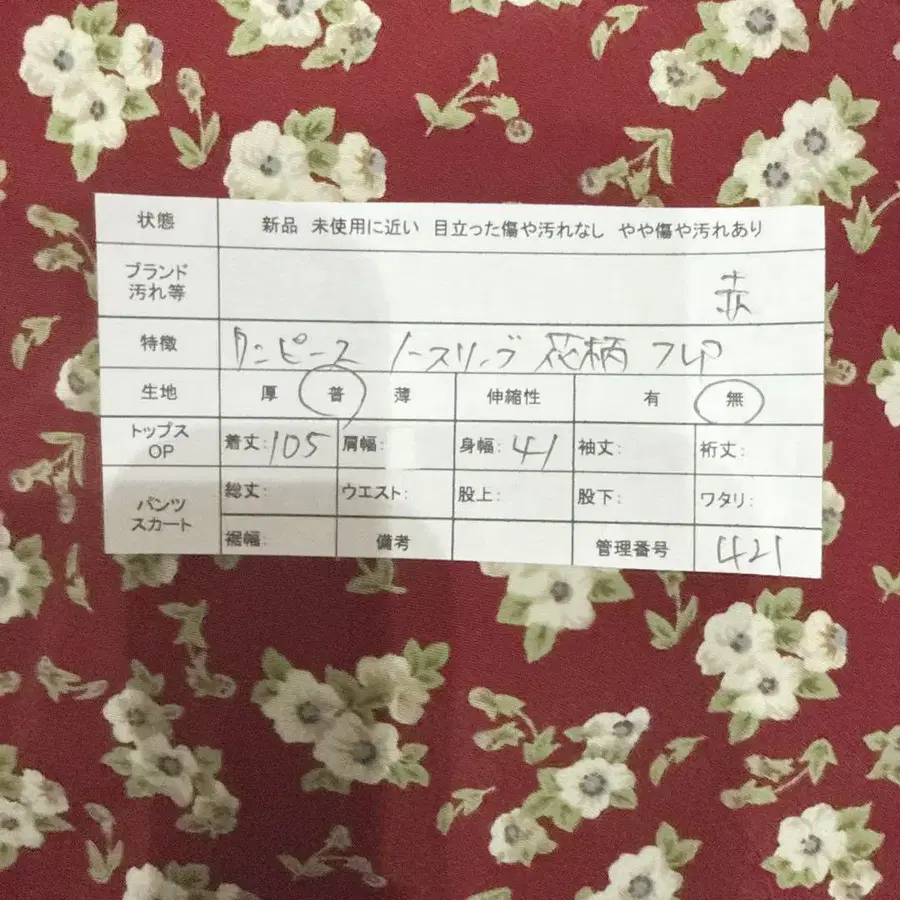 状態 新品 未使用に近い 目立った傷や汚れなし やや傷や汚れあり
ブランド
汚れ等 赤
特徴 ワンピース ノースリーブ 花柄
生地 厚 普 薄 伸縮性 有 無
トップス
OP 着丈:105 肩幅: 身幅:41 袖丈: 裄丈:
パンツ
スカート 総丈: ウエスト: 股上: 股下: ワタリ:
裾幅: 備考 管理番号 421